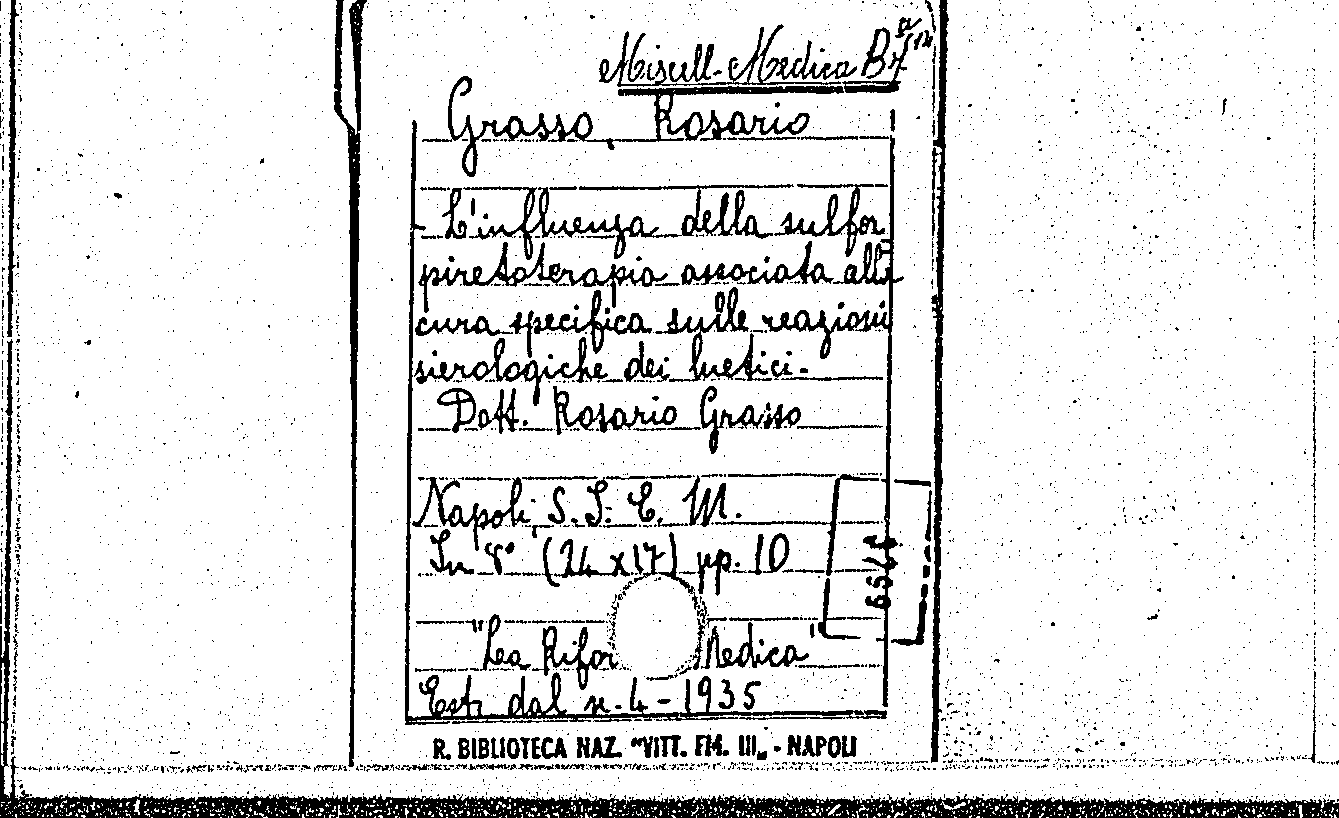 Miscell. Medica B
Grasso, Rosario
- L'influenza della sulfor
piretoterapia associata alla
cura specifica sulle reazioni
sierologiche dei luetici.
Dott. Rosario Grasso
Napoli, S. I. E. M.
In 8° (24 x 17) pp. 10
"La Rifor Medica"
Estr. dal n. 4 - 1935
R. BIBLIOTECA NAZ. "VITT. EM. III„ - NAPOLI